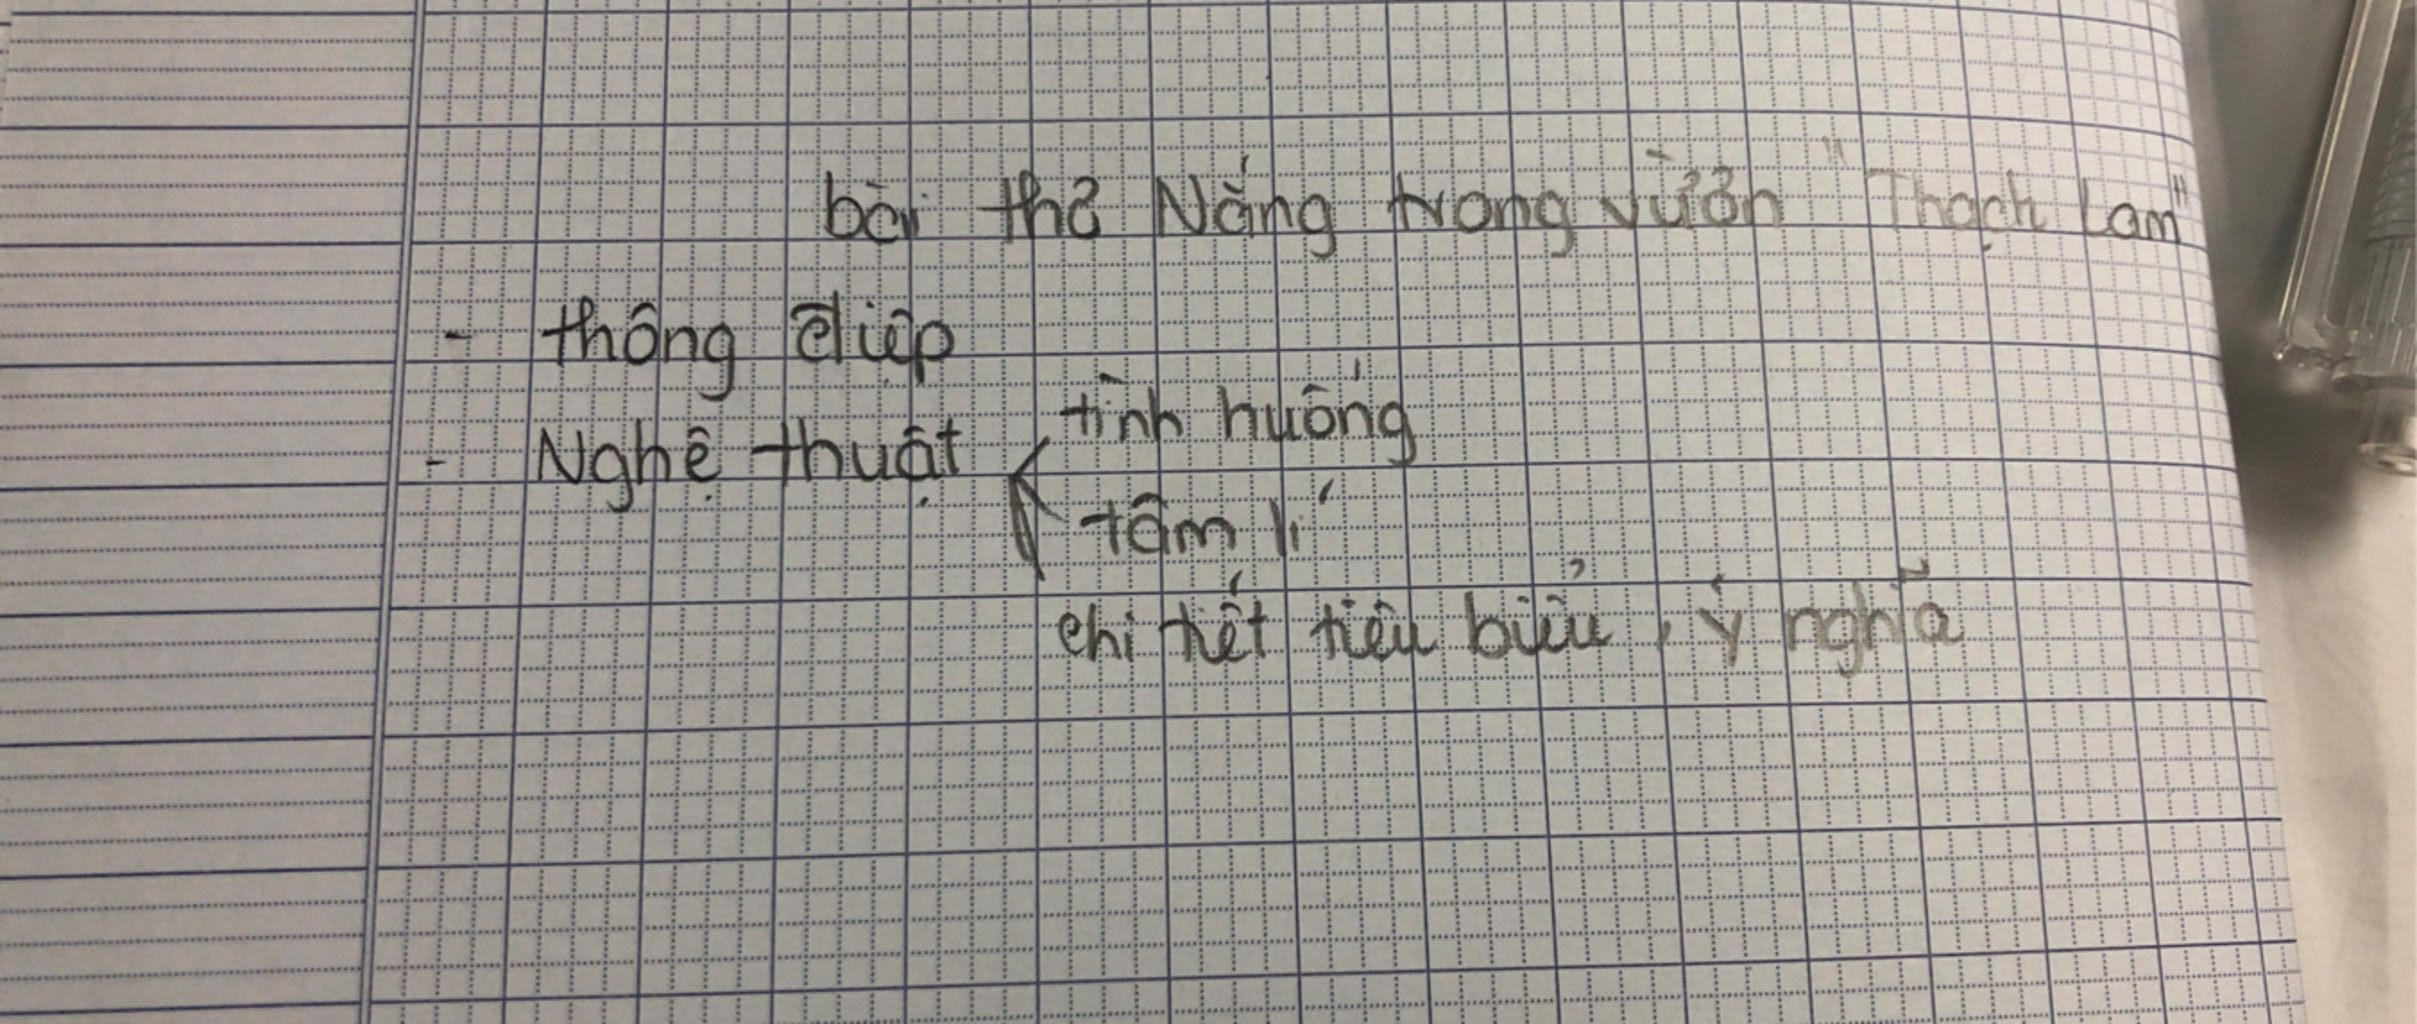 bài thơ Nắng trong vườn "Thạch Lam"
- thông điệp
- Nghệ thuật
tình huống
tâm lí
chi tiết tiêu biểu, ý nghĩa